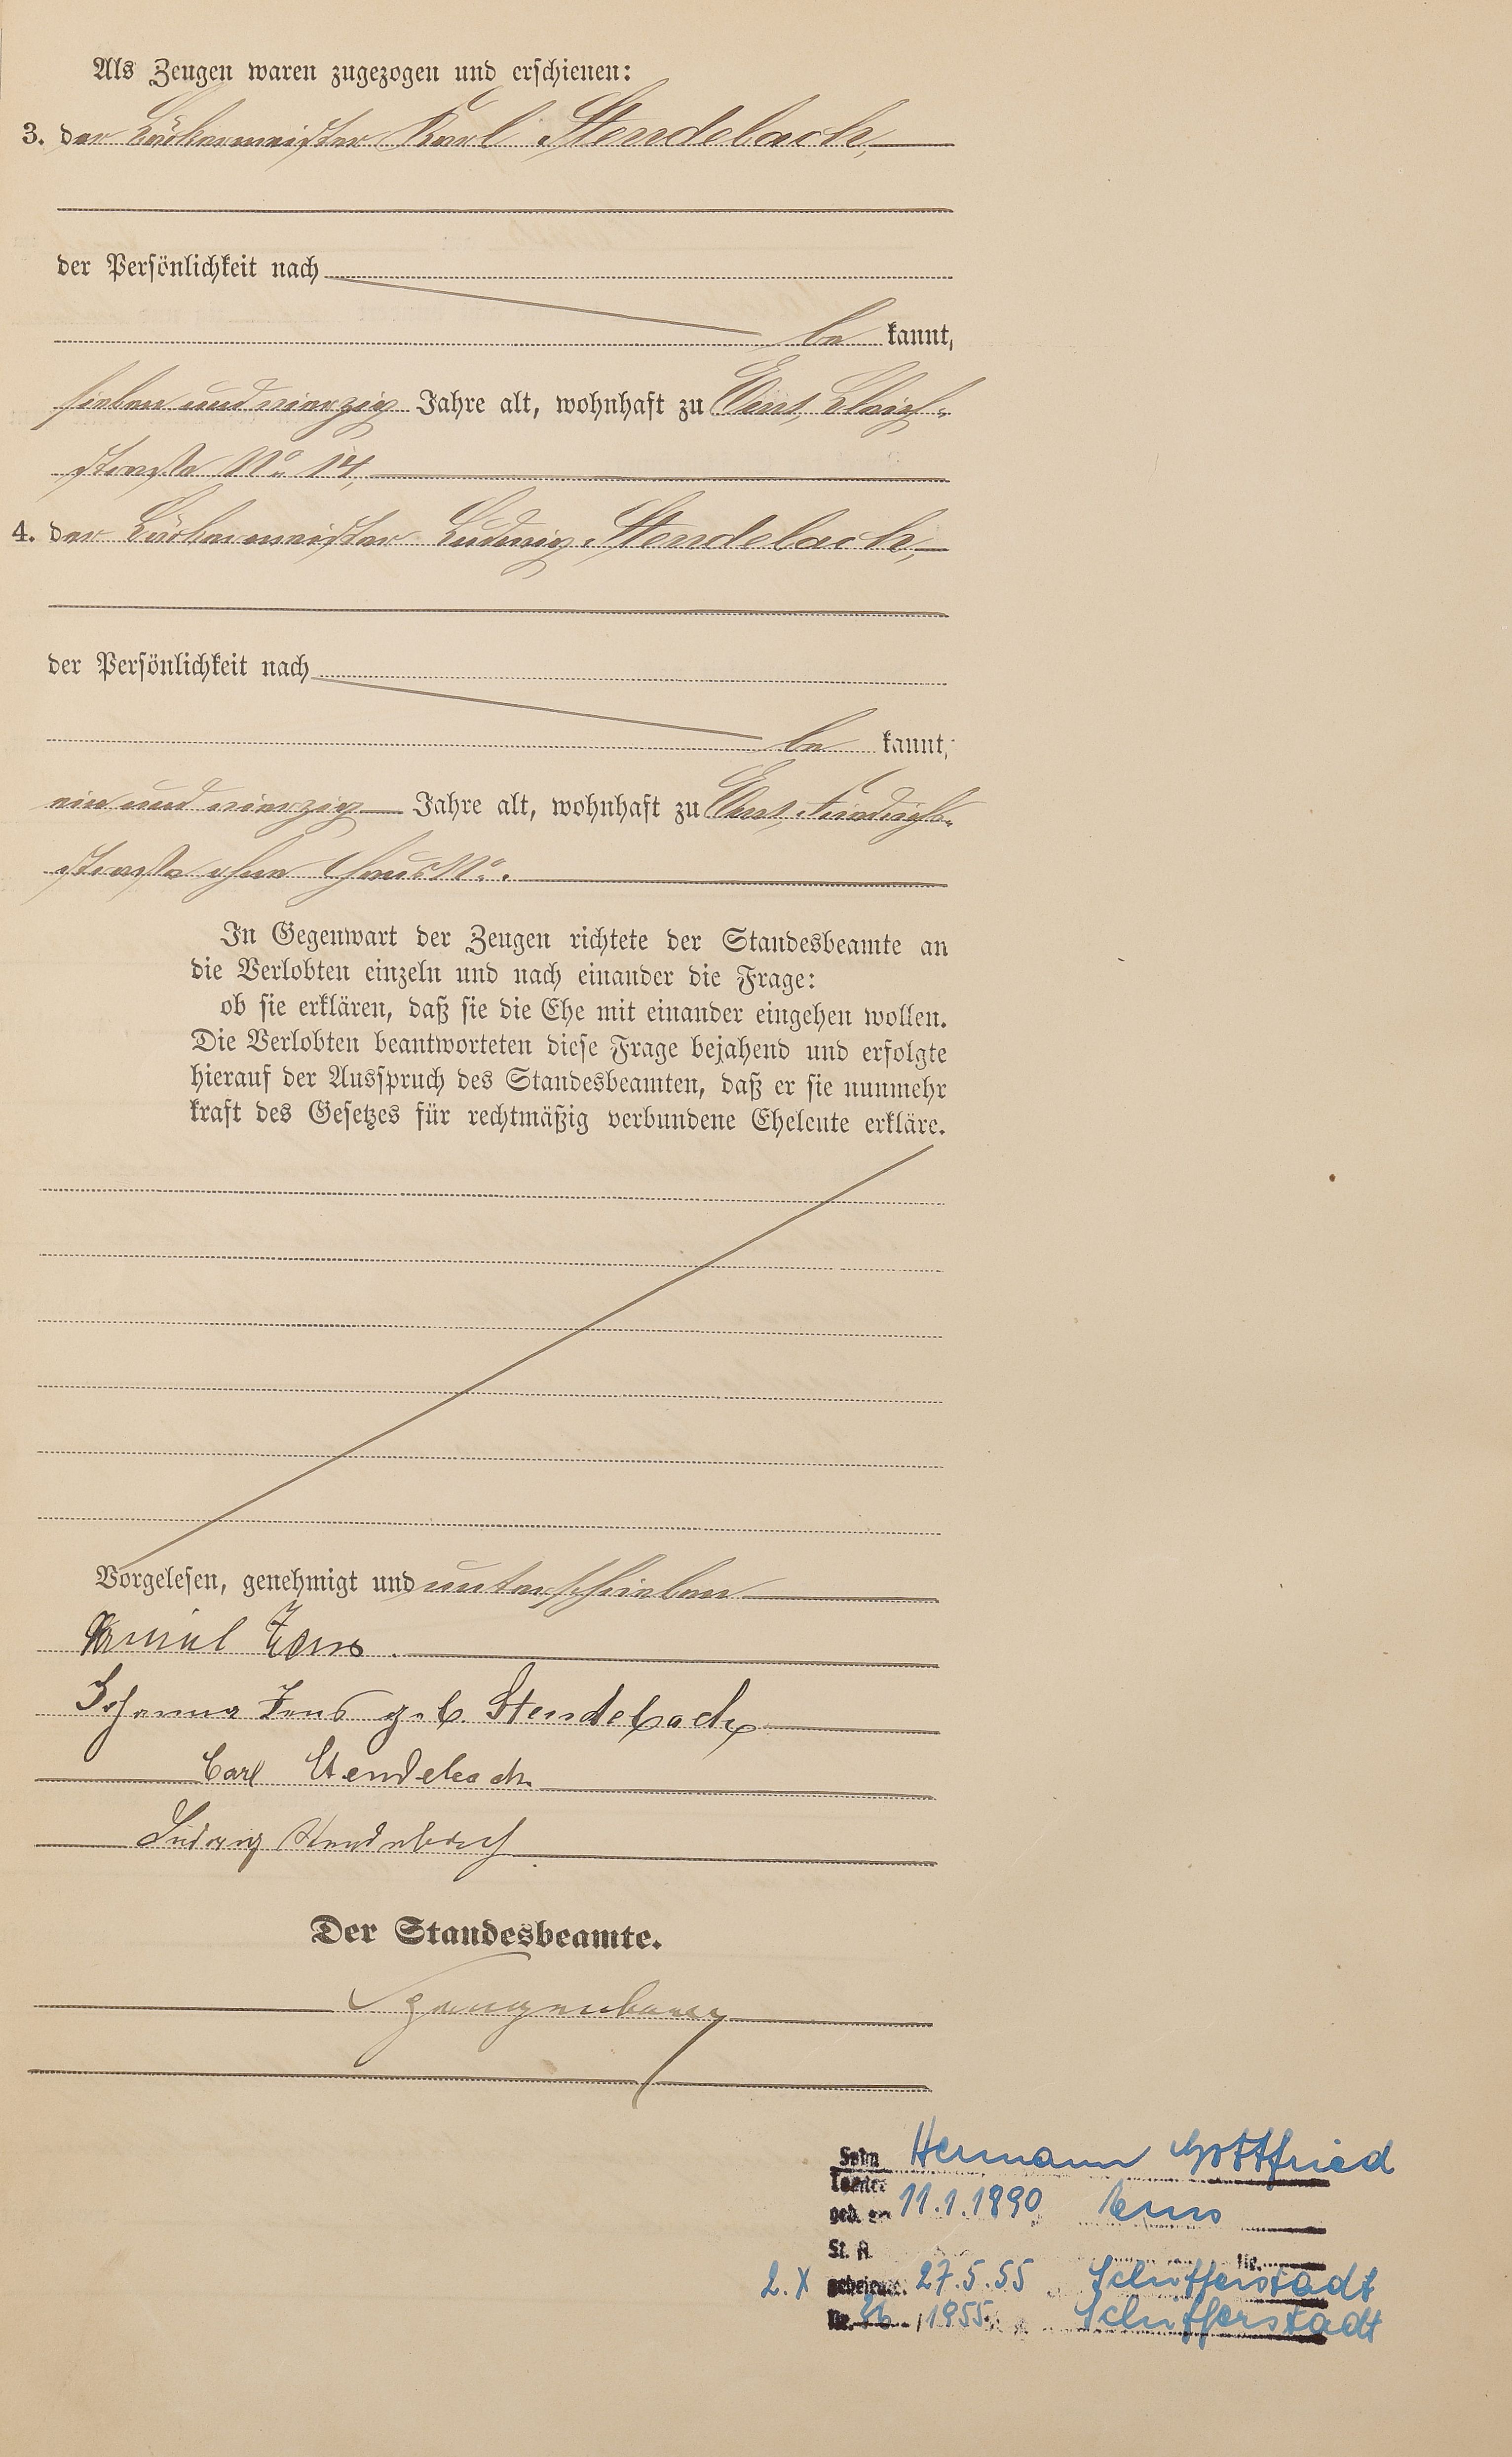 Als Zeugen waren zugezogen und erschienen:
3. der Bäckermeister Karl Stendebach,
der Persönlichkeit nach
be kannt,
sieben und vierzig Jahre alt, wohnhaft zu Ems, Bleich-
straße No. 14,
4. der Bäckermeister Ludwig Stendebach,
der Persönlichkeit nach
be kannt,
ein und vierzig Jahre alt, wohnhaft zu Ems, Friedrichs-
straße ohne Haus No.
In Gegenwart der Zeugen richtete der Standesbeamte an
die Verlobten einzeln und nach einander die Frage:
ob sie erklären, daß sie die Ehe mit einander eingehen wollen.
Die Verlobten beantworteten diese Frage bejahend und erfolgte
hierauf der Ausspruch des Standesbeamten, daß er sie nunmehr
kraft des Gesetzes für rechtmäßig verbundene Eheleute erkläre.
Vorgelesen, genehmigt und unterschrieben
Johanna geb. Stendebach
Carl Stendebach
Ludwig Stendebach
Der Standesbeamte.
Sohn Hermann Gottfried
Tochter
geb. am 11.1.1890 Ems
St. A. Nr.
2. X geheiratet 27.5.55 Schifferstadt
Nr. 36 / 1955 Schifferstadt